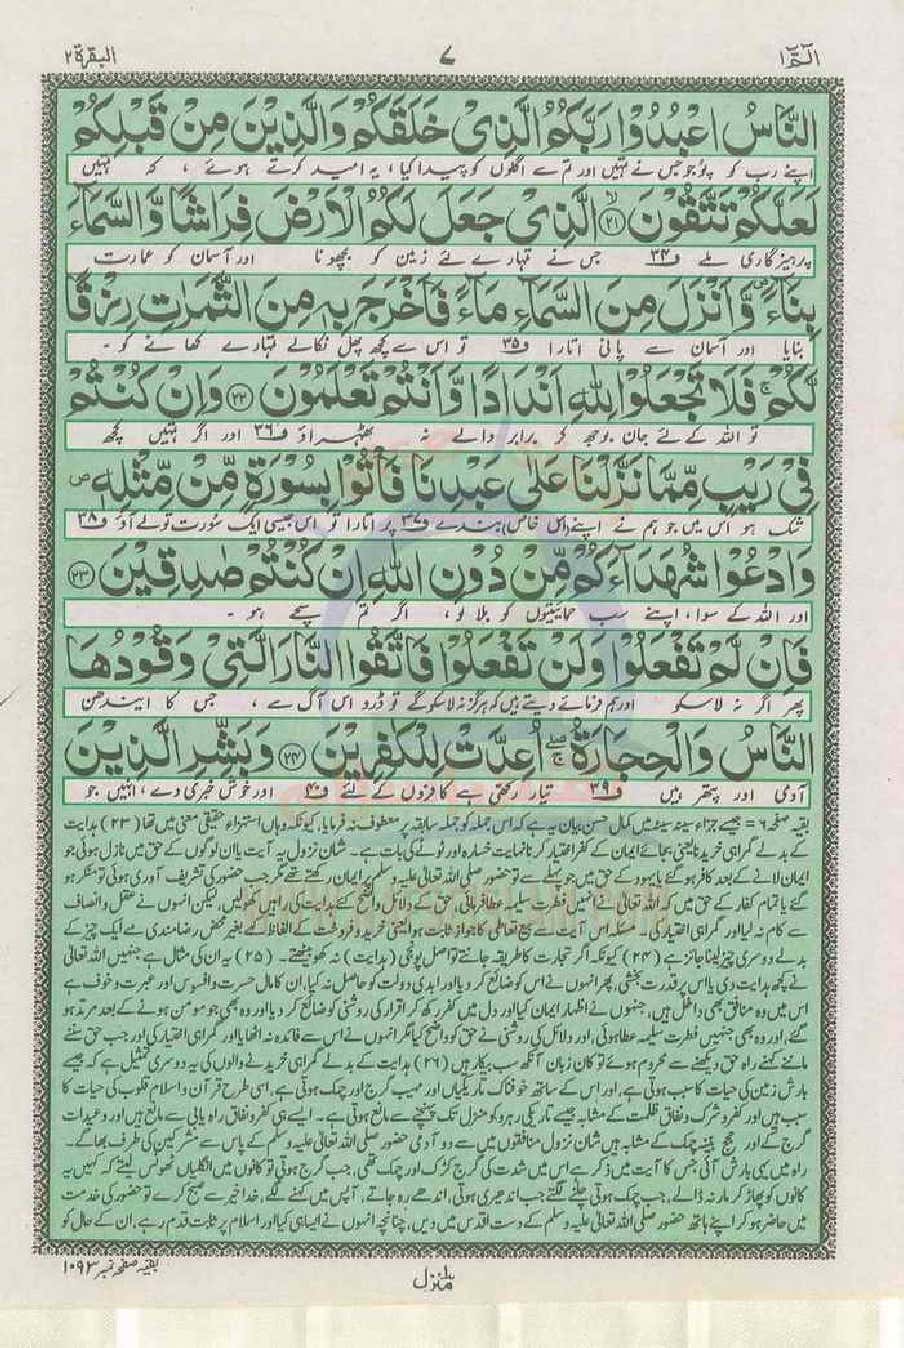 الٓمّٓ ۱ ۷ البقرۃ ۲
النَّاسُ اعْبُدُوْا رَبَّكُمُ الَّذِیْ خَلَقَكُمْ وَالَّذِیْنَ مِنْ قَبْلِكُمْ
اپنے رب کو پوجو جس نے تمہیں اور تم سے اگلوں کو پیدا کیا، یہ امید کرتے ہوئے، کہ تمہیں
لَعَلَّكُمْ تَتَّقُوْنَ ﴿۲۱﴾ الَّذِیْ جَعَلَ لَكُمُ الْاَرْضَ فِرَاشًا وَّالسَّمَآءَ
پرہیزگاری ملے ف۳۴ جس نے تمہارے لئے زمین کو بچھونا اور آسمان کو عمارت
بِنَآءً وَّاَنْزَلَ مِنَ السَّمَآءِ مَآءً فَاَخْرَجَ بِهٖ مِنَ الثَّمَرٰتِ رِزْقًا
بنایا اور آسمان سے پانی اتارا ف۳۵ تو اس سے کچھ پھل نکالے تمہارے کھانے کو۔
لَّكُمْ ۚ فَلَا تَجْعَلُوْا لِلّٰهِ اَنْدَادًا وَّاَنْتُمْ تَعْلَمُوْنَ ﴿۲۲﴾ وَاِنْ كُنْتُمْ
تو اللہ کے لئے جان بوجھ کر برابر والے نہ ٹھہراؤ ف۳۶ اور اگر تمہیں کچھ
فِیْ رَیْبٍ مِّمَّا نَزَّلْنَا عَلٰی عَبْدِنَا فَاْتُوْا بِسُوْرَةٍ مِّنْ مِّثْلِهٖ ۪
شک ہو اس میں جو ہم نے اپنے (اس خاص) بندے ف۳۷ پر اتارا تو اس جیسی ایک سورت تو لے آؤ ف۳۸
وَادْعُوْا شُهَدَآءَكُمْ مِّنْ دُوْنِ اللّٰهِ اِنْ كُنْتُمْ صٰدِقِیْنَ ﴿۲۳﴾
اور اللہ کے سوا، اپنے سب حمائیتوں کو بلا لو، اگر تم سچے ہو۔
فَاِنْ لَّمْ تَفْعَلُوْا وَلَنْ تَفْعَلُوْا فَاتَّقُوا النَّارَ الَّتِیْ وَقُوْدُهَا
پھر اگر نہ لا سکو اور ہم فرمائے دیتے ہیں کہ ہرگز نہ لا سکو گے تو ڈرو اس آگ سے، جس کا ایندھن
النَّاسُ وَالْحِجَارَةُ ۚۖ اُعِدَّتْ لِلْكٰفِرِیْنَ ﴿۲۴﴾ وَبَشِّرِ الَّذِیْنَ
آدمی اور پتھر ہیں ف۳۹ تیار رکھی ہے کافروں کے لئے ف۴۰ اور خوش خبری دے، انہیں جو
بقیہ صفحہ ۶ = جیسے جزاء سیئۃ سیئۃ میں کمال حسن بیان یہ ہے کہ اس جملہ کو جملہ سابقہ پر معطوف نہ فرمایا، کیونکہ وہاں استہزاء حقیقی معنی میں تھا (۲۳) ہدایت
کے بدلے گمراہی خریدنا یعنی بجائے ایمان کے کفر اختیار کرنا نہایت خسارہ اور ٹوٹے کی بات ہے۔ شان نزول یہ آیت یا ان لوگوں کے حق میں نازل ہوئی جو
ایمان لانے کے بعد کافر ہو گئے یا یہود کے حق میں جو پہلے سے تو حضور صلی اللہ تعالیٰ علیہ وسلم پر ایمان رکھتے تھے مگر جب حضور کی تشریف آوری ہوئی تو منکر ہو
گئے یا تمام کفار کے حق میں کہ اللہ تعالیٰ نے انہیں فطرت سلیمہ عطا فرمائی حق کے دلائل واضح کئے ہدایت کی راہیں کھولیں، لیکن انہوں نے عقل و انصاف
سے کام نہ لیا اور گمراہی اختیار کی۔ مسئلہ اس آیت سے بیع تعاطی کا جواز ثابت ہوا یعنی خرید و فروخت کے الفاظ کے بغیر محض رضامندی سے ایک چیز کے
بدلے دوسری چیز لینا جائز ہے (۲۴) کیونکہ اگر تجارت کا طریقہ جانتے تو اصل پونجی (ہدایت) نہ کھو بیٹھتے۔ (۲۵) یہ ان کی مثال ہے جنہیں اللہ تعالیٰ
نے کچھ ہدایت دی یا اس پر قدرت بخشی، پھر انہوں نے اس کو ضائع کر دیا اور ابدی دولت کو حاصل نہ کیا، ان کا مال حسرت و افسوس اور عبرت و خوف ہے
اس میں وہ منافق بھی داخل ہیں، جنہوں نے اظہار ایمان کیا اور دل میں کفر رکھ کر اقرار کی روشنی کو ضائع کر دیا اور وہ بھی جو مومن ہونے کے بعد مرتد ہو
گئے، اور وہ بھی جنہیں فطرت سلیمہ عطا ہوئی، اور دلائل کی روشنی نے حق کو واضح کیا مگر انہوں نے اس سے فائدہ نہ اٹھایا اور گمراہی اختیار کی اور جب حق سننے
ماننے کہنے راہ حق دیکھنے سے محروم ہوئے تو کان زبان آنکھ سب بیکار ہیں (۲۶) ہدایت کے بدلے گمراہی خریدنے والوں کی یہ دوسری تمثیل ہے کہ جیسے
بارش زمین کی حیات کا سبب ہوتی ہے، اور اس کے ساتھ خوفناک تاریکیاں اور مہیب گرج اور چمک ہوتی ہے، اسی طرح قرآن و اسلام قلوب کی حیات کا
سبب ہیں اور کفر و شرک و نفاق ظلمت کے مشابہ جیسے تاریکی رہرو کو منزل تک پہنچنے سے مانع ہوتی ہے۔ ایسے ہی کفر و نفاق راہ یابی سے مانع ہیں اور وعیدات
گرج کے اور حجج بینہ چمک کے مشابہ ہیں شان نزول منافقوں میں سے دو آدمی حضور صلی اللہ تعالیٰ علیہ وسلم کے پاس سے مشرکین کی طرف بھاگے۔
راہ میں یہی بارش آئی جس کا آیت میں ذکر ہے اس میں شدت کی گرج کڑک اور چمک تھی، جب گرج ہوتی تو کانوں میں انگلیاں ٹھونس لیتے کہ کہیں یہ
کانوں کو پھاڑ کر مار نہ ڈالے، جب چمک ہوتی چلنے لگتے جب اندھیری ہوتی، اندھے رہ جاتے، آپس میں کہنے لگے، خدا خیر سے صبح کرے تو حضور کی خدمت
میں حاضر ہو کر اپنے ہاتھ حضور صلی اللہ تعالیٰ علیہ وسلم کے دست اقدس میں دیں، چنانچہ انہوں نے ایسا ہی کیا اور اسلام پر ثابت قدم رہے، ان کے حال کو
منزل ۱ بقیہ صفحہ نمبر ۱۰۹۳